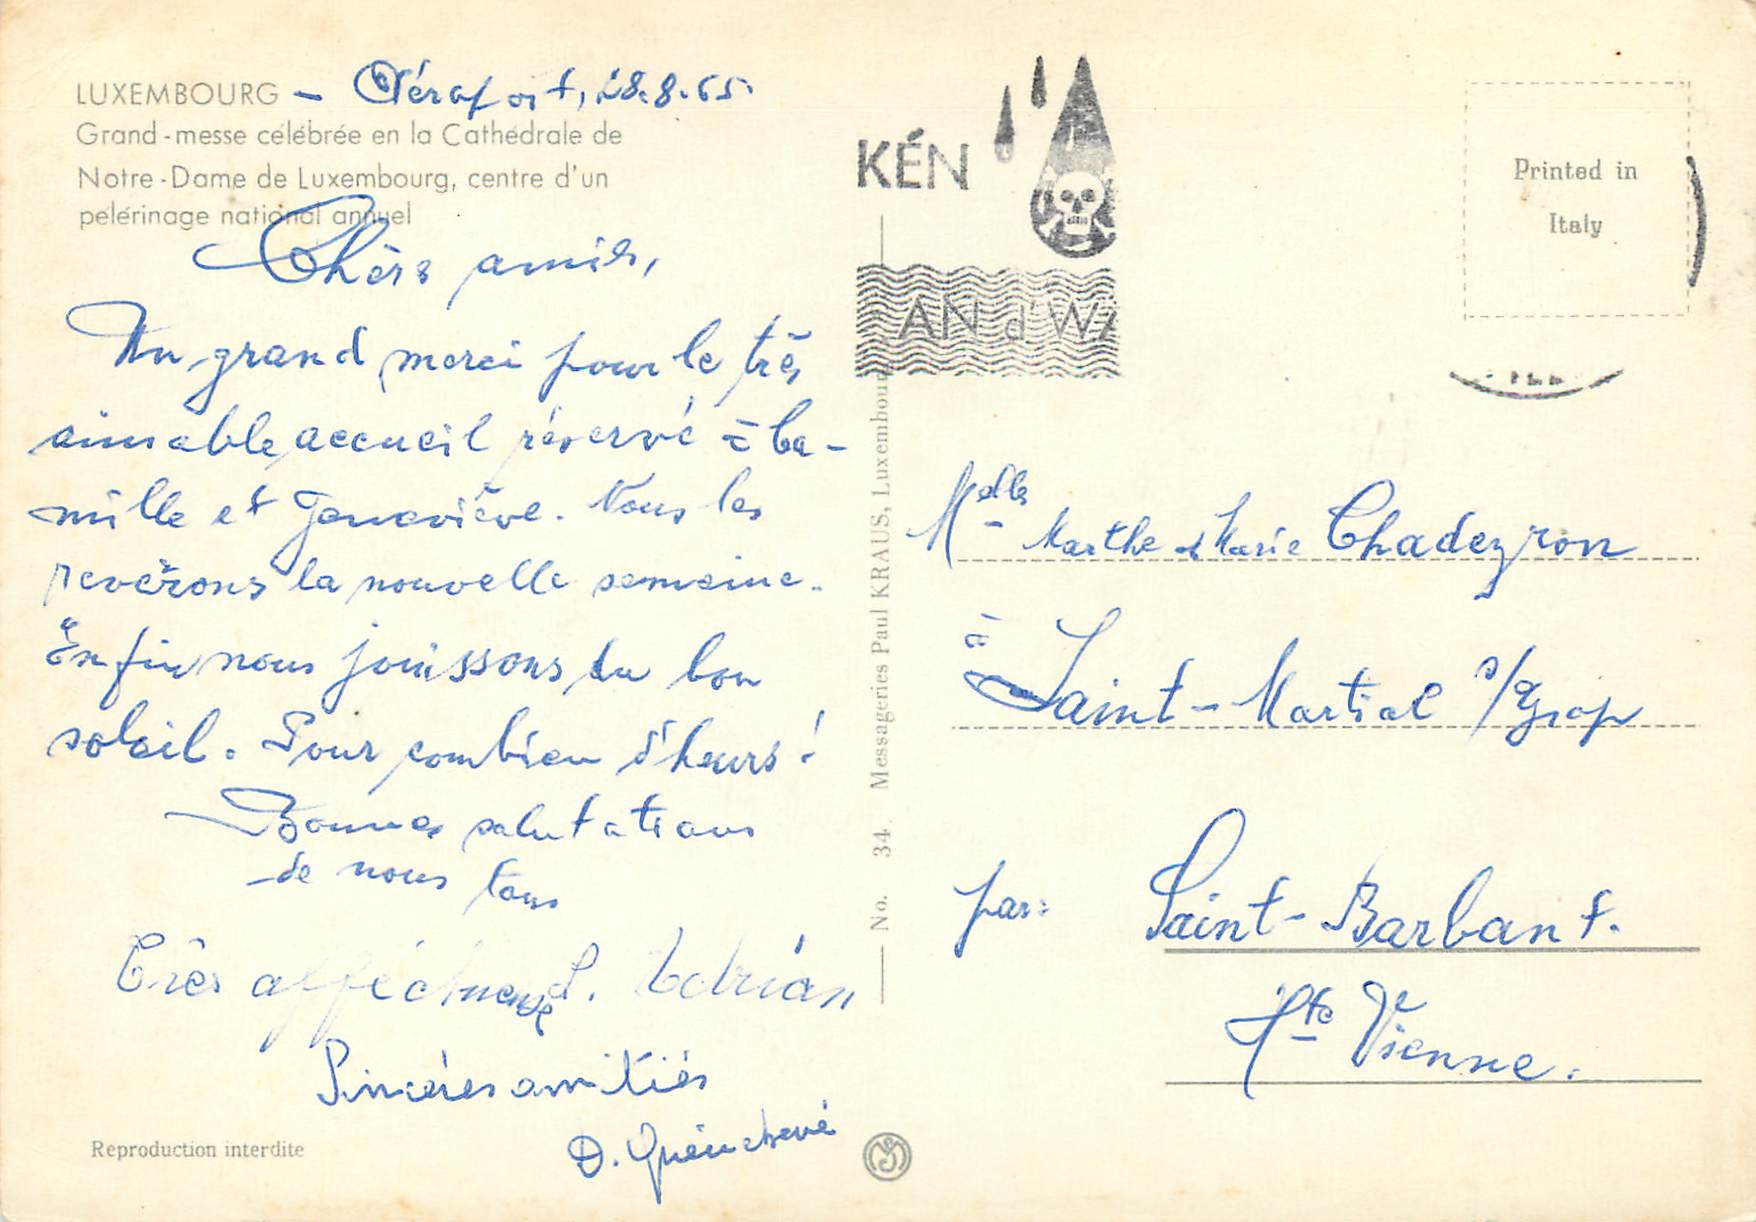 LUXEMBOURG – 28.8.65
Grand-messe célébrée en la Cathédrale de
Notre-Dame de Luxembourg, centre d'un
pélérinage national annuel
Chers amis,
Un grand merci pour le très
aimable accueil réservé à Ca-
mille et Geneviève. Nous les
reverrons la nouvelle semaine.
Enfin nous jouissons du bon
soleil. Pour combien d'heurs!
Bonnes salutations
de nous tous
Très Adrian
Sincères amitiés
D.
Reproduction interdite
No. 34 Messageries Paul KRAUS, Luxembourg
KÉN
AN d'WA
Printed in
Italy
Melles Marthe et Marie Chadeyron
à
Saint-Martial s/
par: Saint-Barbant.
Hte Vienne.